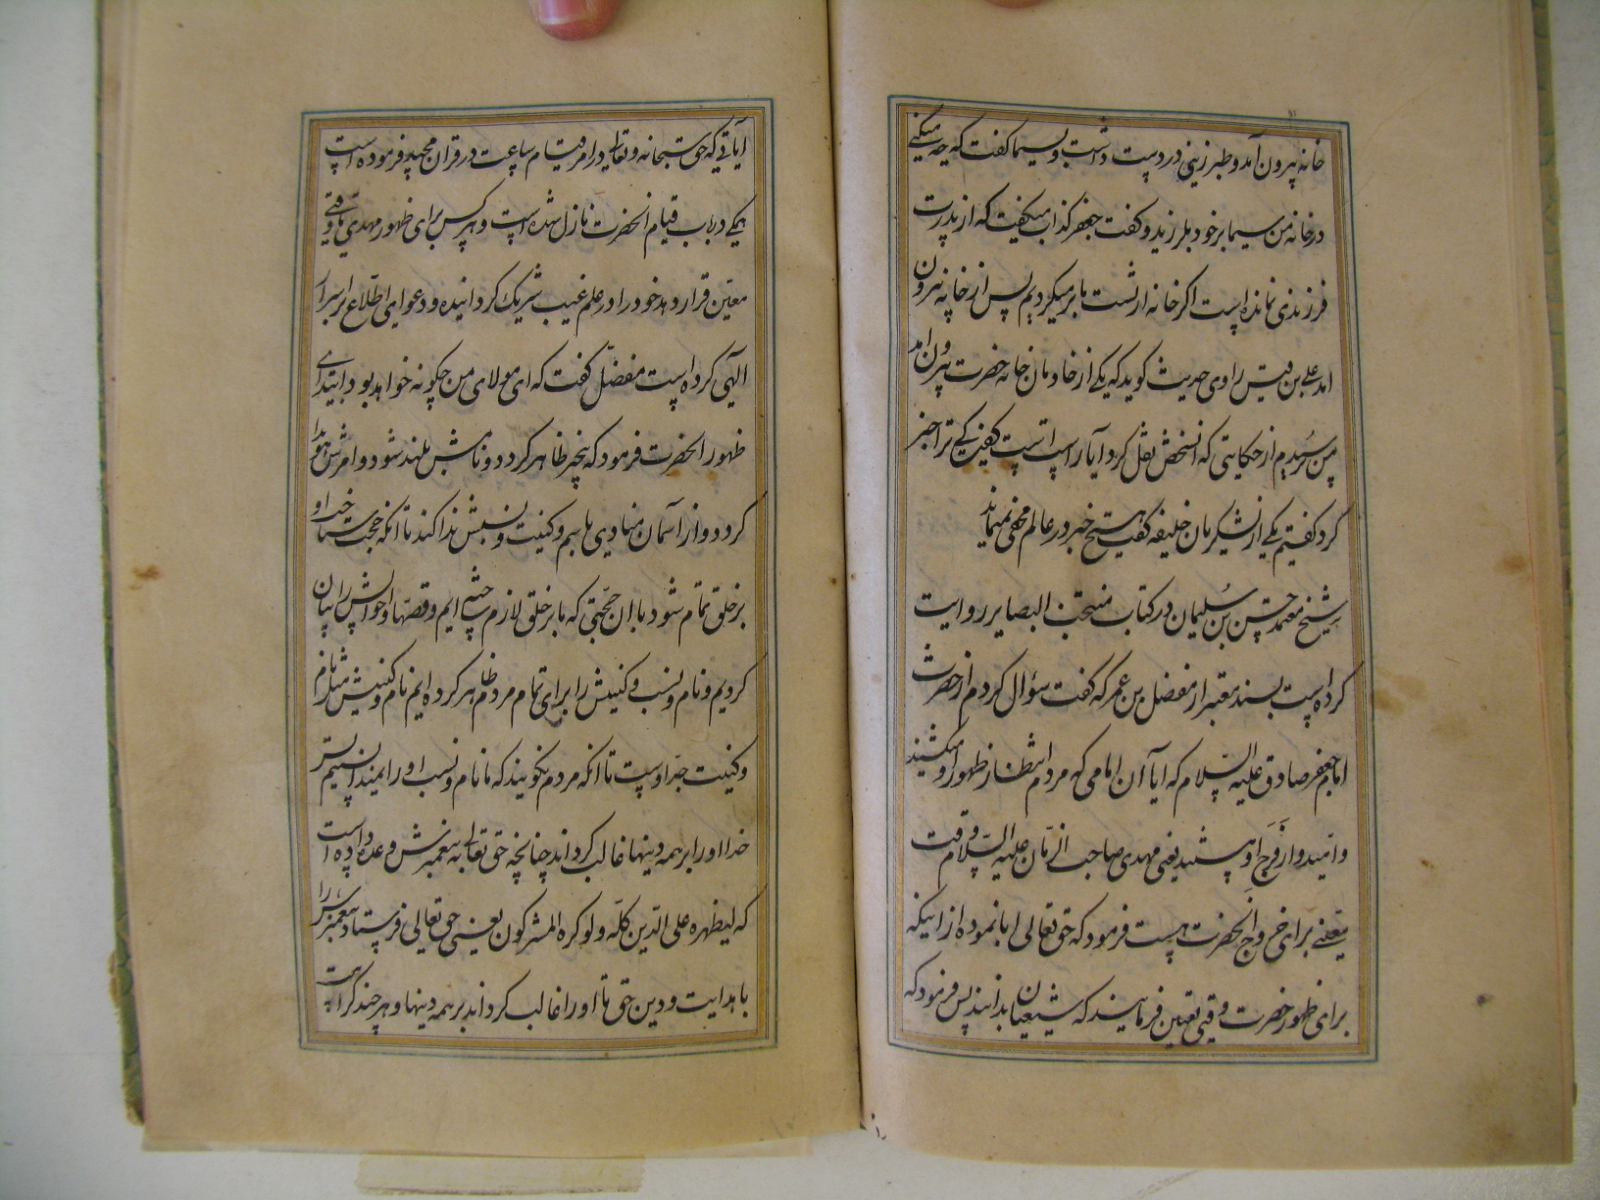 خانه بیرون آمد و طبرزینی در دست داشت و بسیما گفت که چه میکنی
در خانه من سیما بر خود بلرزید و گفت جعفر کذاب میگفت که از پدرت
فرزندی نمانده است اگر خانه از تست ما بر میگردیم پس از خانه بیرون
آمد علی بن قیس راوی حدیث گوید که یکی از خادمان خانه حضرت بیرون آمد
من پرسیدم از حکایتی که آنشخص نقل کرد آیا راست است گفت کی ترا خبر
کرد گفتم یکی از لشکریان خلیفه گفت هیچ خبر در عالم مخفی نمیماند
شیخ معتمد حسن بن سلیمان در کتاب منتخب البصایر روایت
کرده است بسند معتبر از مفضل بن عمر که گفت سؤال کردم از حضرت
امام جعفر صادق علیه السلام که آیا آن امامی که مردم انتظار ظهور او میکشند
و امیدوار فرج او هستند یعنی مهدی صاحب الزمان علیه السلام وقت
معینی برای خروج آنحضرت هست فرمود که حق تعالی ابا نموده از اینکه
برای ظهور حضرت وقتی تعیین فرمایند که شیعیان بدانند پس فرمود که
آیاتی که حق سبحانه و تعالی در امر قیام ساعت در قران مجید فرموده است
یکی در باب قیام آنحضرت نازل شده است و هر کس برای ظهور مهدی ما وقتی
معین قرار دهد خود را در علم غیب شریک گردانیده و دعوای اطلاع بر اسرار
الهی کرده است مفضل گفت که ای مولای من چگونه خواهد بود ابتدای
ظهور آنحضرت فرمود که بیخبر ظاهر گردد و نامش بلند شود و امرش هویدا
گردد و از آسمان منادی باسم و کنیت و نسبش ندا کند تا آنکه حجت شناخت او
بر خلق تمام شود با آن حجتی که ما بر خلق لازم ساخته ایم و قصها و احوالش را بیان
کردیم و نام و نسب و کنیتش را برای تمام مردم ظاهر کرده ایم نام و کنیتش مثل نام
و کنیت جد اوست تا آنکه مردم نگویند که ما نام و نسب او را نمیدانستیم پس
خدا او را بر همه دینها غالب گرداند چنانچه حق تعالی به پیغمبرش وعده داده است
که لیظهره علی الدین کله و لو کره المشرکون یعنی حق تعالی فرستاد پیغمبرش را
با هدایت و دین حق تا او را غالب گرداند بر همه دینها و هر چند کراهت